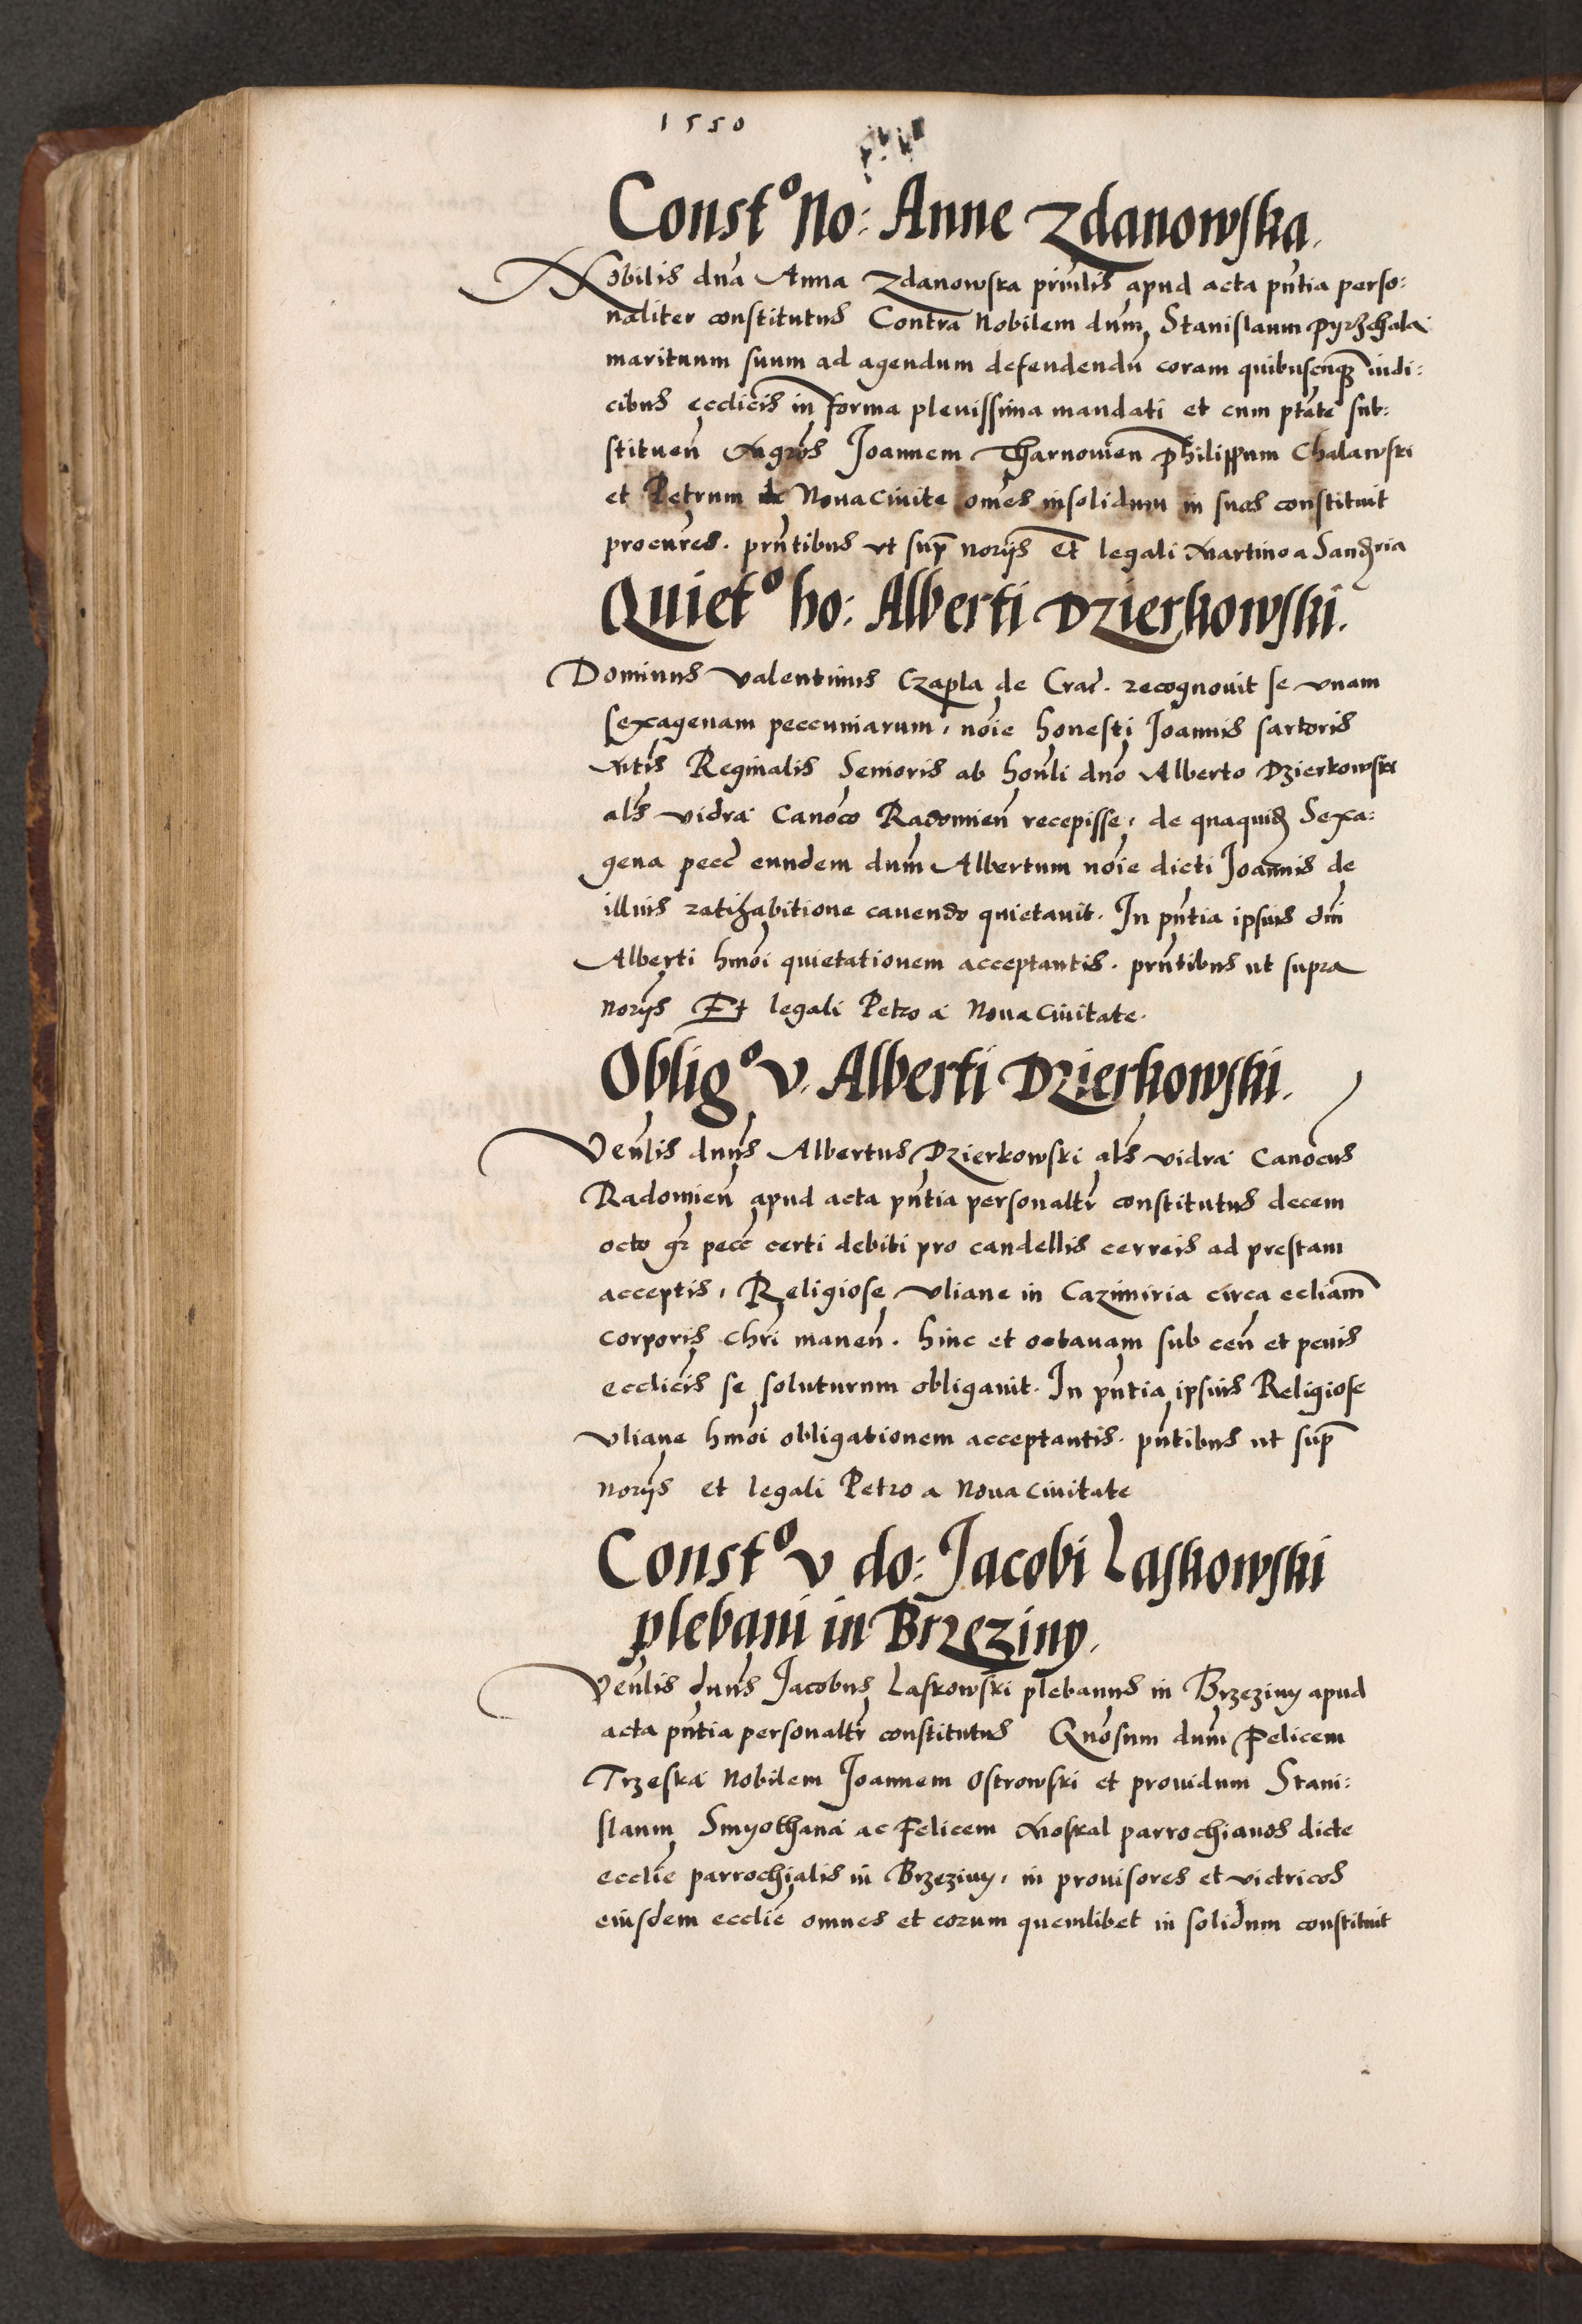 1550
Const° No: Anne Zdanowska.
Nobilis dña Anna Zdanowska prîntis apud acta pñtia perso:
naliter constitutus Contra Nobilem dum Stanislaum Pyrzchala
marituum suum ad agendum defendendũ coram quibuscunq iudi:
cibus ecclicis in forma plenissima mandati et cum ptâte sub:
stituen̄ Mgros Joannem Tharnouien Philippum Chalawski
et Petrum de Noua Ciuite om̃es insolidum in suos constituit
procures. prñtibus vt sup norijs Et legali Martino a Sandria
Quiet° ho: Alberti Dzierkowski.
Dominus Valentinus Czapla de Crac. recognouit se vnam
sexagenam peccuniarum, nõie honesti Joannis sartoris
Mtis Reginalis Senioris ab honli dno Alberto Dzierkowski
als Vidra Canoco Radomien̄ recepisse, de quaquid Sexa:
gena pecc eundem dum Albertum nõie dicti Joannis de
illius ratihabitione cauendo quietauit. In pñtia ipsius dni
Alberti hmõi quietationem acceptantis. prñtibus ut supra
norijs Et legali Petro a Noua Ciuitate.
Oblig° V. Alberti Dzierkowski.
Venlis dnus Albertus Dzierkowski als Vidra Canocus
Radomien̄ apud acta pñtia personaltr constitutus decem
octo gr pecc certi debiti pro candellis cerreis ad prestam
acceptis, Religiose Vliane in Cazimiria circa ecliam
Corporis Chri manen̄. hinc et octauam sub cen̄ et penis
ecclicis se soluturum obligauit. In pñtia ipsius Religiose
Vliane hmõi obligationem acceptantis. pñtibus ut sup
norijs et legali Petro a Noua Ciuitate
Const° V do: Jacobi Laskowski
plebani in Brzeziny.
Venlis dnus Jacobus Laskowski plebanus in Brzeziny apud
acta pñtia personaltr constitutus Gnosum dum Felicem
Trzeska Nobilem Joannem Ostrowski et prouidum Stani:
slaum Smyothana ac Felicem Moskal parrochianos dicte
ecclie parrochialis in Brzeziny, in prouisores et victricos
eiusdem ecclie omnes et eorum quemlibet in solidum constituit